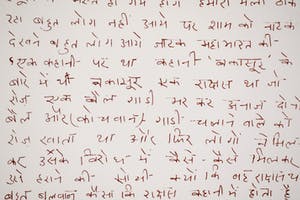 रहा बहुत लोग नहीं आये पर शाम को नाटक
देखने बहुत लोग आये नाटक महाभारत की-
एक कहानी- पर था कहानी 'बकासुर' के-
बारे में थी बकासुर एक राक्षस था जो-
रोज एक बैल गाडी भर कर अनाज दोनो
बैल और (कोचवान) गाडी- चलाने वाले को
रोज खाता था और फिर लोगो ने मिल
कर उसके विरोध में कैसे- कैसे मिलकर
उसे हराने की- सोची क्यो कि वह राक्षस था
बहुत बलवान जैसा कि राक्षस कहानी में होता है